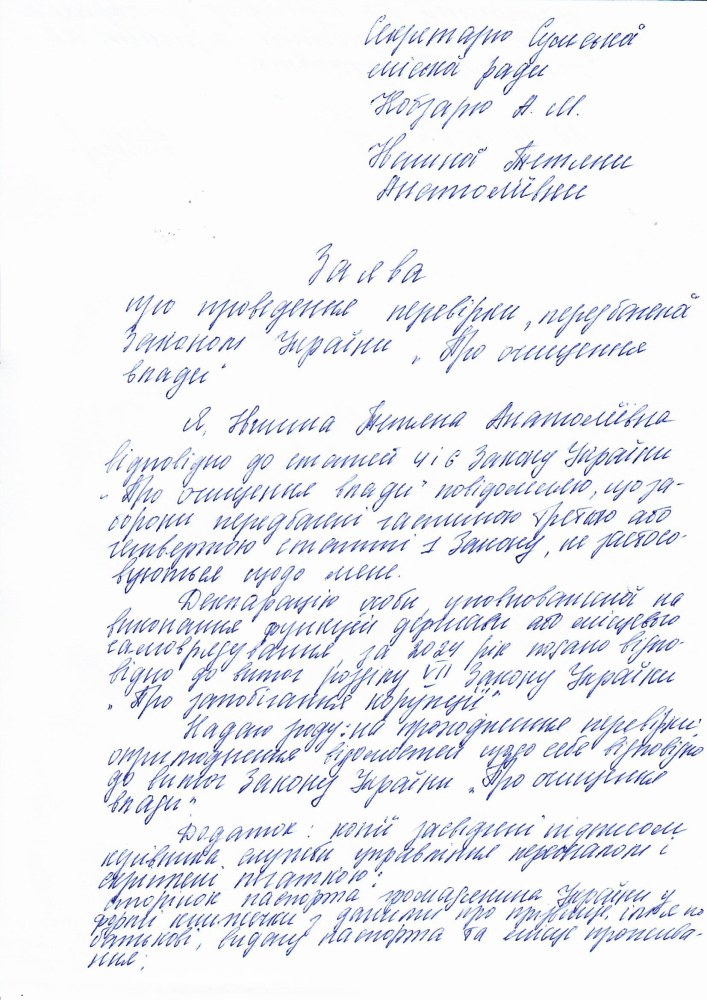 Секретарю Сумської
міської ради
Кобзарю А. М.
Тетяни
Анатоліївни
Заява
про проведення перевірки, передбаченої
Законом України „Про очищення
влади"
Я, Тетяна Анатоліївна
відповідно до статей 4 і 6 Закону України
„Про очищення влади" повідомляю, що за-
борони передбачені частиною третьою або
четвертою статті 1 Закону, не застосо-
вуються щодо мене.
Декларацію особи, уповноваженої на
виконання функцій держави або місцевого
самоврядування, за 2024 рік подано відпо-
відно до вимог розділу VII Закону України
„Про запобігання корупції".
Надаю згоду: на проходження перевірки;
оприлюднення відомостей щодо себе відповідно
до вимог Закону України „Про очищення
влади".
Додаток: копії засвідчені підписом
керівника служби управління персоналом і
скріплені печаткою:
сторінок паспорта громадянина України у
формі книжечки з даними про прізвище, ім'я по
батькові, видачу паспорта та місце прожива-
ння;